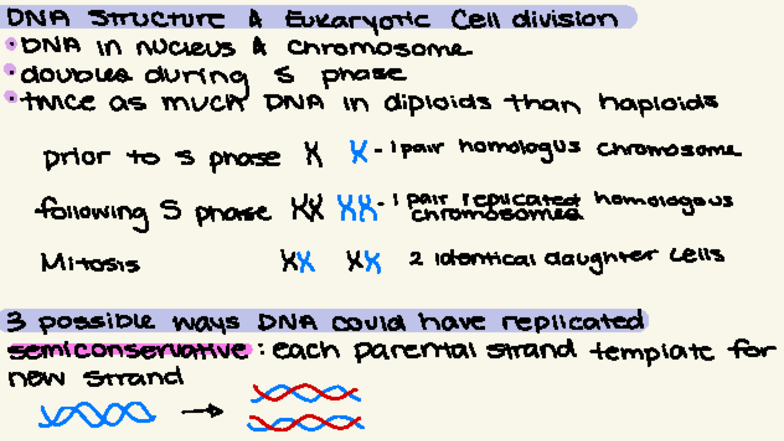 DNA Structure & Eukaryotic Cell division
•DNA in nucleus & chromosome
•doubles during S phase
•twice as much DNA in diploids than haploids
prior to S phase X X - 1 pair homologus chromosome
following S phase XX XX - 1 pair replicated homologous
chromosomes
Mitosis XX XX 2 identical daughter cells
3 possible ways DNA could have replicated
semiconservative: each parental strand template for
new strand